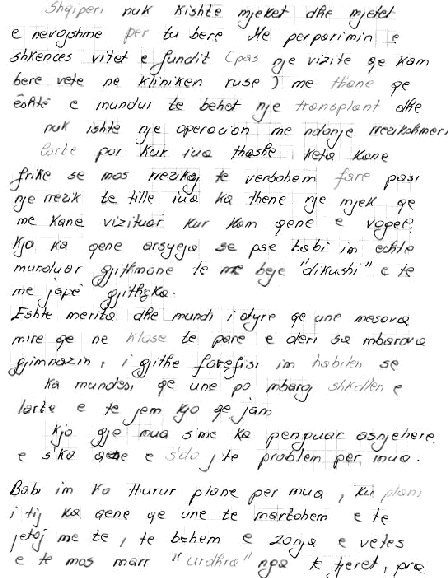 Shqiperi nuk kishte mjeket dhe mjetet
e nevojshme per tu bere Me perparimin e
shkences vitet e fundit (pas nje vizite qe kam
bere vete ne kliniken ruse) me thane qe
është e mundur te behet nje transplant dhe
nuk ishte nje operacion me ndonje rrezikshmeri
larte por kur iua thashe, keta kane
frike se mos rrezikoj te verbohem fare pasi
nje rrezik te tille iua ka thene nje mjek qe
me kane vizituar kur kam qene e vogel.
Kjo ka qene arsyeja se pse babi im eshte
munduar gjithmone te me beje "dikushi" e te
me jape gjithçka.
Eshte merita dhe mundi i atyre qe une mesova
mire qe ne klase te pare e deri sa mbarova
gjimnazin, i gjithe farefisi im habiten se
ka mundesi qe une po mbaroj shkollen e
larte e te jem kjo qe jam
Kjo gje mua s'me ka penguar asnjehere
e s'ka qene e s'do jete problem per mua.
Babi im ka thurur plane per mua, ku plani
i tij ka qene qe une te martohem e te
jetoj me te, te behem e zonja e vetes
e te mos marr "urdhra" nga te tjeret, pra